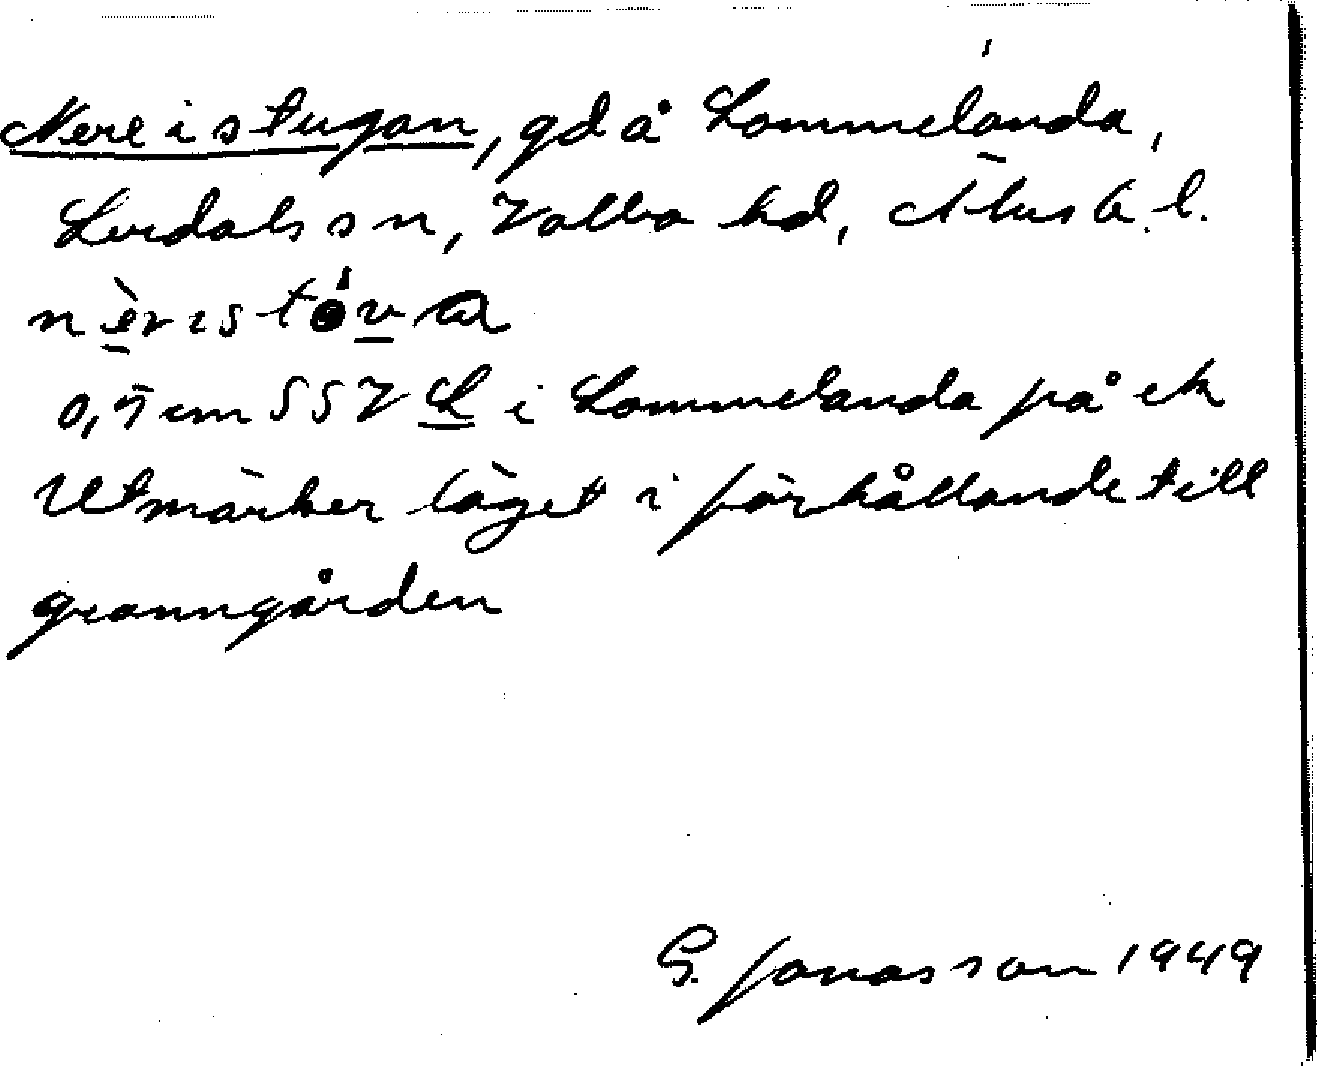 Nere i stugan, gd å Lommelanda,
Lurdals sn, Valbo hd, Älvsb. l.
nèristóva
0,5 cm SSV L i Lommelanda på ek
Utmärker läget i förhållande till
granngården
G. Jonasson 1949